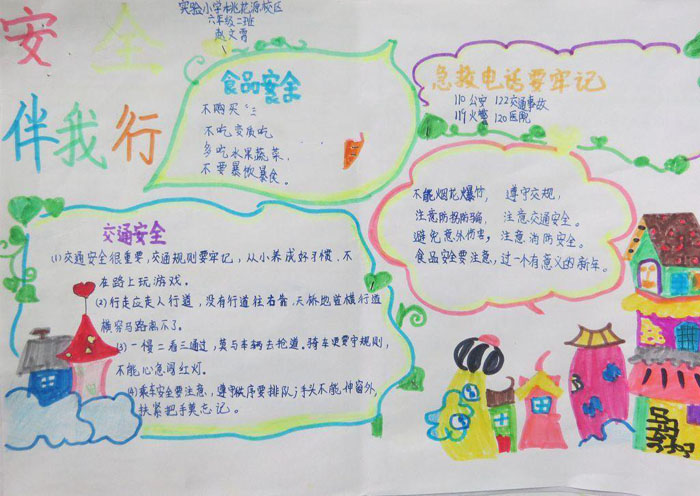 安全
伴我行
实验小学桃花源校区
六年级二班
赵文雪
食品安全
不购买"三
不吃变质吃
多吃水果蔬菜,
不要暴饮暴食。
急救电话要牢记
110公安 122交通事故
119火警 120医院
不能烟花爆竹, 遵守交规,
注意防拐防骗, 注意交通安全。
避免意外伤害, 注意消防安全。
食品安全要注意,过一个有意义的新年。
交通安全
(1)交通安全很重要,交通规则要牢记,从小养成好习惯,不
在路上玩游戏。
(2)行走应走人行道,没有行道往右靠,天桥地道横行道
横穿马路离不了。
(3)一慢二看三通过,莫与车辆去抢道。骑车更要守规则,
不能心急闯红灯。
(4)乘车安全要注意,遵守秩序要排队;手头不能伸窗外,
扶紧把手莫忘记。